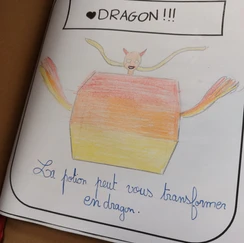 ♥DRAGON!!!
La potion peut vous transformer
en dragon.